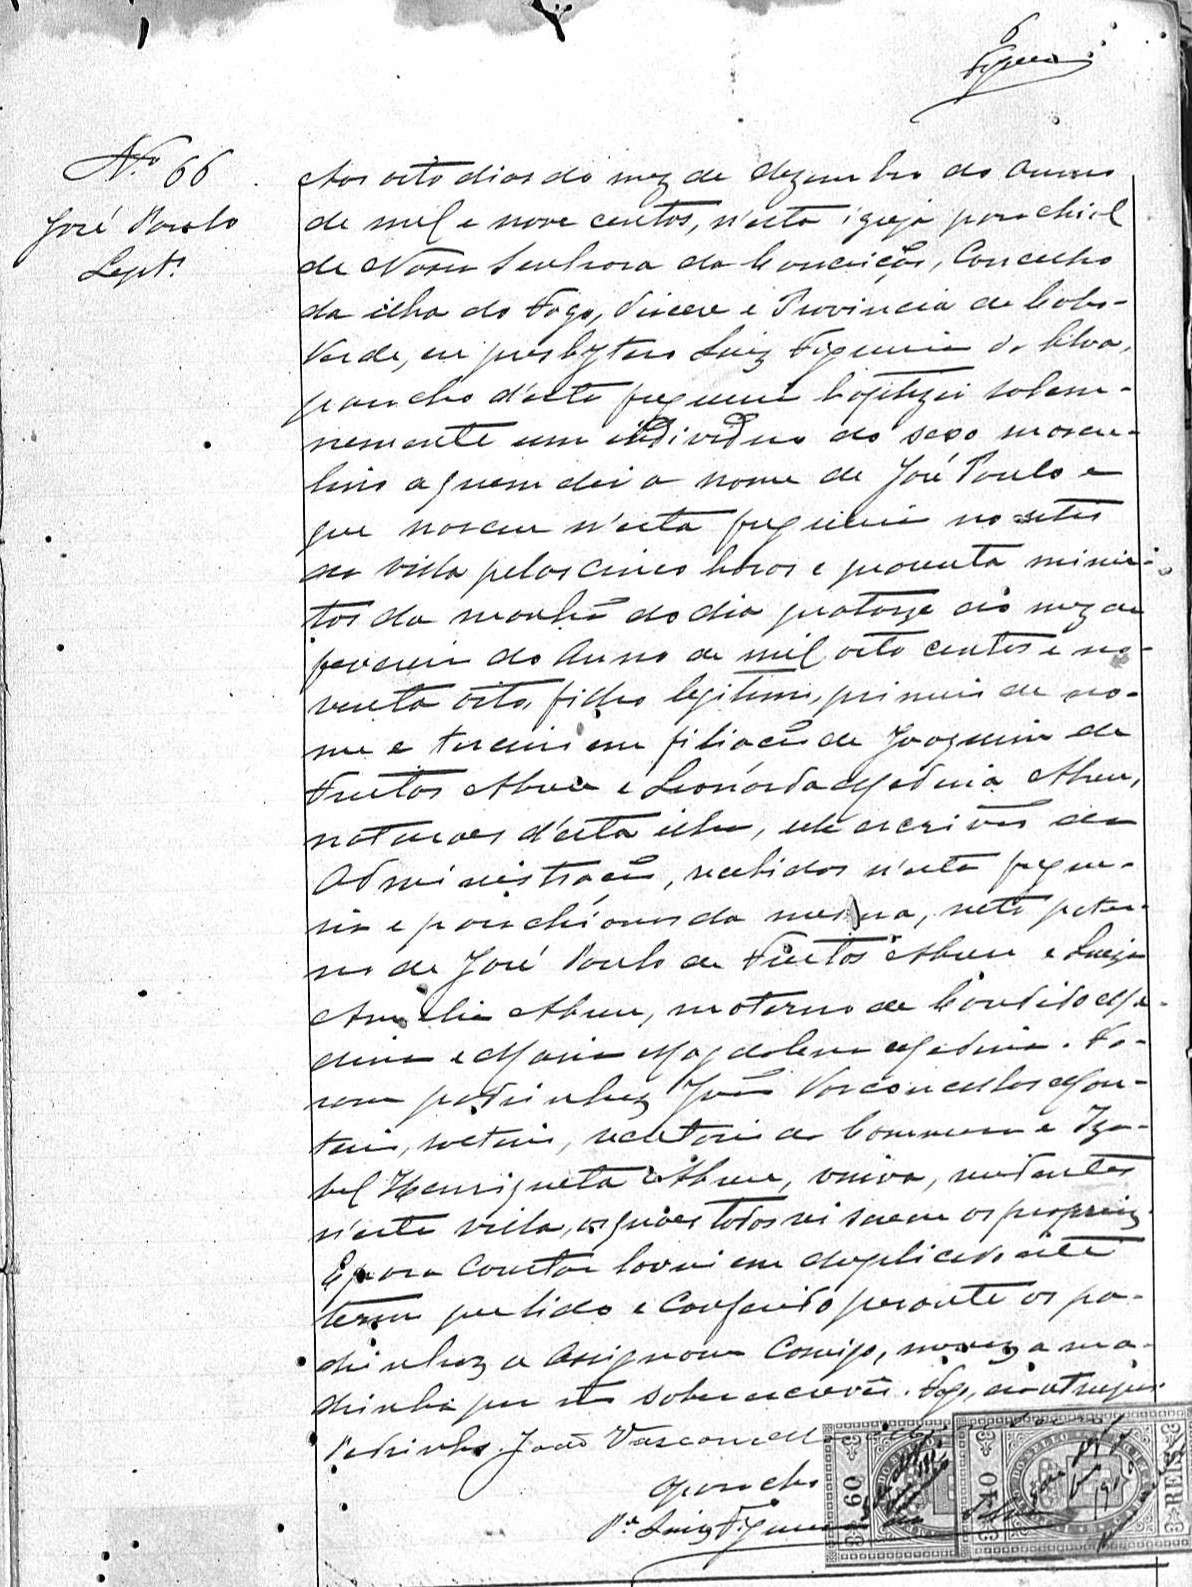 6
Figueira
Nº 66
José Paulo
Legitº
Aos oito dias do mez de dezembro do anno
de mil e nove centos, n'esta igreja parochial
de Nossa Senhora da Conceição, Concelho
da ilha do Fogo, Diocese e Provincia de Cabo-
Verde, eu presbytero Luiz Figueira da Silva,
parocho d'esta freguezia baptizei solem-
nemente um individuo do sexo mascu-
lino a quem dei o nome de José Paulo e
que nasceu n'esta freguezia no sitio
da Villa pelas cinco horas e quarenta minu-
tos da manhã do dia quatorze do mez de
fevereiro do anno de mil oito centos e no-
venta oito, filho legitimo, primeiro de no-
me e terceiro em filiação de Joaquim de
Freitas Abreu e Leonarda Medina Abreu,
naturaes d'esta ilha, elle escrivão da
Administração, recebidos n'esta fregue-
zia e parochianos da mesma, neto pater-
no de José Paulo de Freitas Abreu e Luiza
Amelia Abreu, materno de Candido Me-
dina e Maria Magdalena Medina. Fo-
ram padrinhos João Vasconcellos Mon-
teiro, solteiro, da Commarca e Iza-
bel Henriqueta Abreu, viuva, residentes
n'esta villa, os quaes todos sei serem os proprios.
E para constar lavrei em duplicado este
termo que lido e conferido perante os pa-
drinhos a assignam comigo, a ma-
drinha por não saber escrever. Fogo, era ut supra.
Padrinho João Vasconcellos
O parocho
Pe Luiz Figueira da Silva
60
40
REIS